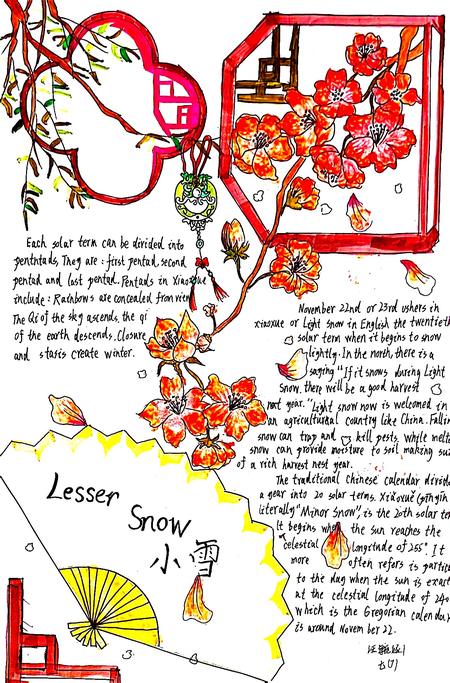 Each solar term can be divided into
pentntads. They are : first pentad, second
pentad and last pentad. Pentads in Xiaoxue
include : Rainbows are concealed from view
The Qi of the sky ascends, the qi
of the earth descends. Closure
and stasis create winter.
November 22nd or 23rd ushers in
xiaoxue or Light snow in English the twentieth
solar term when it begins to snow
lightly. In the north, there is a
saying "If it snows during Light
Snow, there will be a good harvest
next year." Light snow now is welcomed in
an agricultural country like China. Fallin
snow can trap and kill pests, while melte
snow can provide moisture to soil, making su
of a rich harvest nest year.
The traditional Chinese calendar divide
a year into 20 solar terms. Xiǎoxuě
literally "Minor Snow", is the 20th solar te
It begins when the sun reaches the
celestial longitude of 255° It
more often refers is partic
to the day when the sun is exact
at the celestial longitude of 240
which is the Gregorian calendar
is around November 22.
Lesser
Snow
小雪